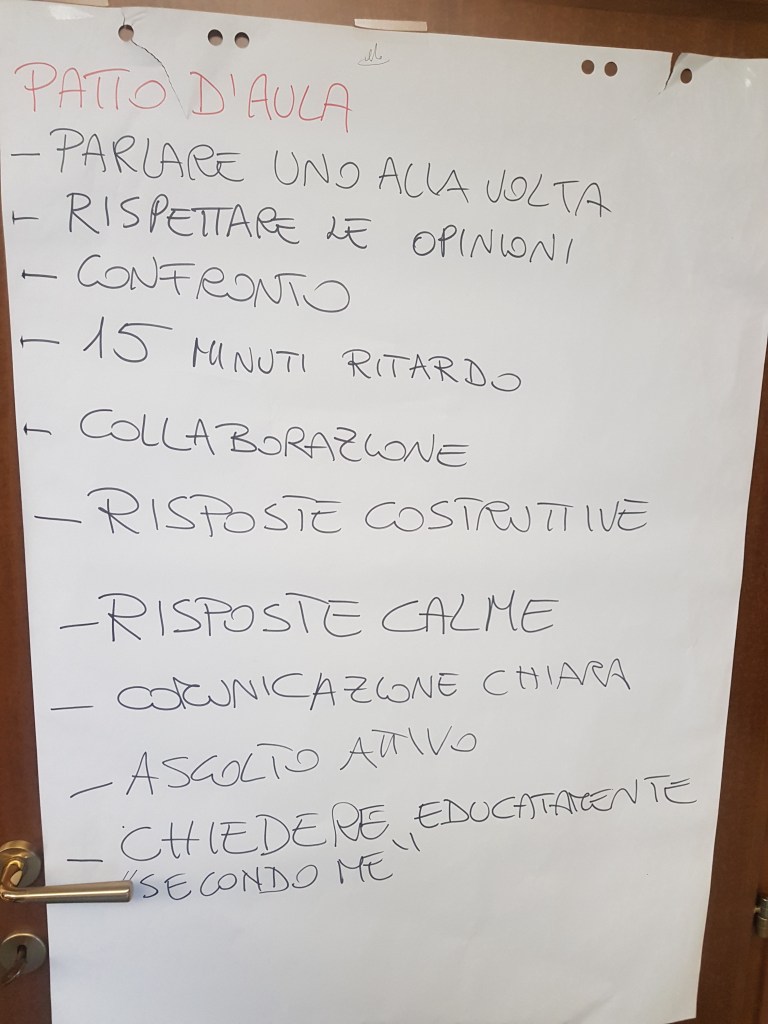 PATTO D'AULA
- PARLARE UNO ALLA VOLTA
- RISPETTARE LE OPINIONI
- CONFRONTO
- 15 MINUTI RITARDO
- COLLABORAZIONE
- RISPOSTE COSTRUTTIVE
- RISPOSTE CALME
- COMUNICAZIONE CHIARA
- ASCOLTO ATTIVO
- CHIEDERE EDUCATAMENTE
"SECONDO ME"